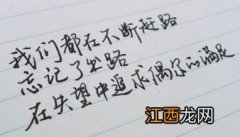 我们都在不断赶路
忘记了出路
在失望中追求偶尔的满足
江西龙网